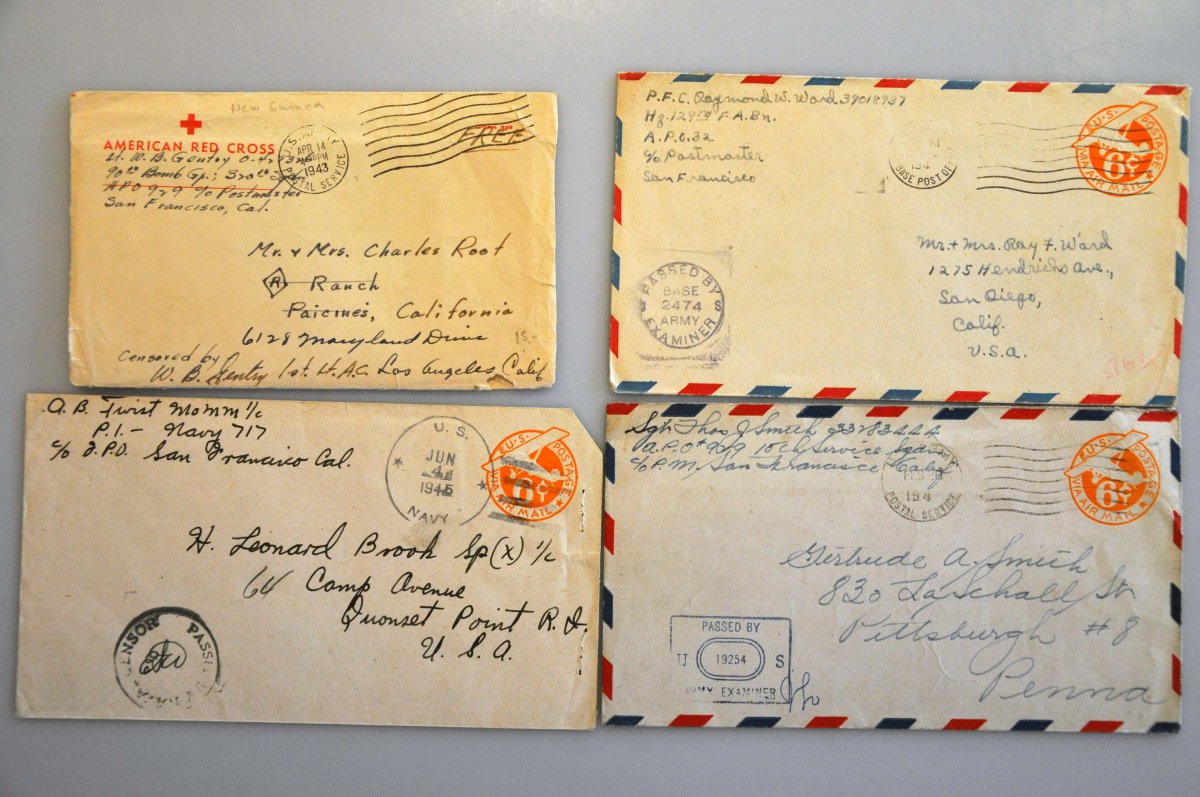 New Guinea
AMERICAN RED CROSS
Lt. W. B. Gentry
90th Bomb Gp.;
APO 929 c/o Postmaster
San Francisco, Cal.
U.S.
APR 14
1943
POSTAL SERVICE
FREE
Mr. + Mrs. Charles Root
R Ranch
Paicines, California
6128 Maryland Drive
15.-
Censored by
W. B. Gentry 1st Lt. A.C. Los Angeles, Calif
P.F.C. Raymond W. Ward 39018937
Hq. 129th F.A. Bn.
A.P.O. 32
c/o Postmaster
San Francisco
194
BASE POST OF
U.S. POSTAGE
6¢
VIA AIR MAIL
PASSED BY
BASE
2474
ARMY
EXAMINER
U S
Mr. + Mrs. Ray F. Ward
1275 Hendricks Ave.,
San Diego,
Calif.
U.S.A.
A. B. Twist Momm 1/c
P.I. - Navy 717
c/o F.P.O. San Francisco Cal.
U. S.
JUN
4
1945
NAVY
U.S. POSTAGE
6¢
VIA AIR MAIL
H. Leonard Brook Sp(X) 1/c
64 Camp Avenue
Quonset Point R. I.
U. S. A.
CENSOR
Sgt. Thos J Smith 33283444
A.P.O. # 929 15th Service Sqdn
c/o P.M. San Francisco Calif
194
POSTAL SERVICE
U.S. POSTAGE
6¢
VIA AIR MAIL
Gertrude A. Smith
830 LaSchall St.
Pittsburgh # 8
Penna
PASSED BY
U 19254 S
ARMY EXAMINER